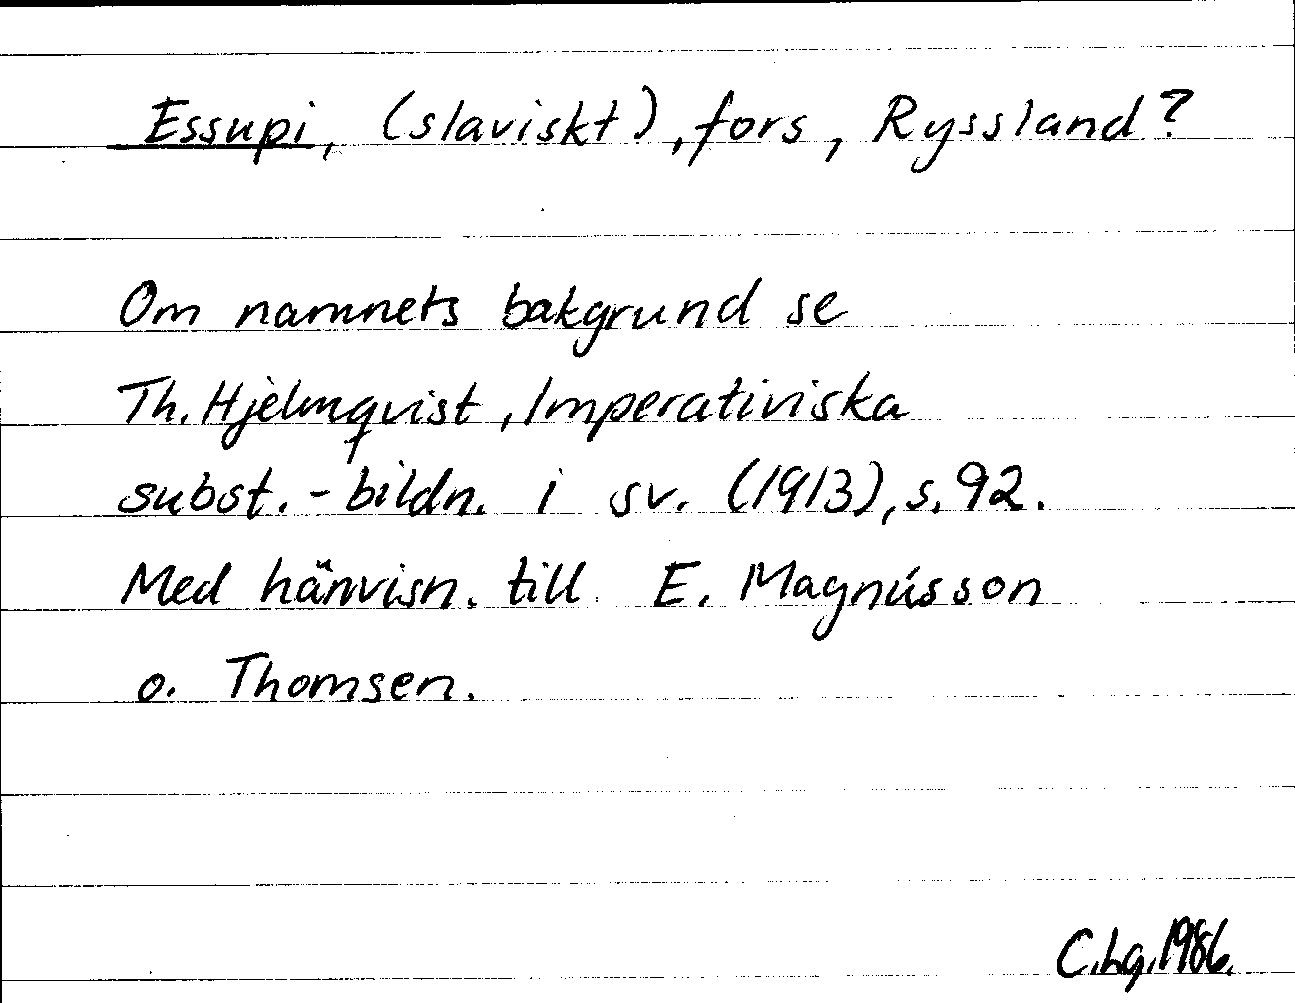 Essupi, (slaviskt), fors, Ryssland?
Om namnets bakgrund se
Th. Hjelmqvist, Imperativiska
subst.-bildn. i sv. (1913), s. 92.
Med hänvisn. till E. Magnússon
o. Thomsen.
C.Lg. 1986.